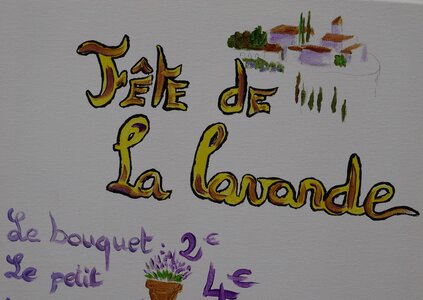 Fête de
La lavande
Le bouquet : 2€
Le petit 4€